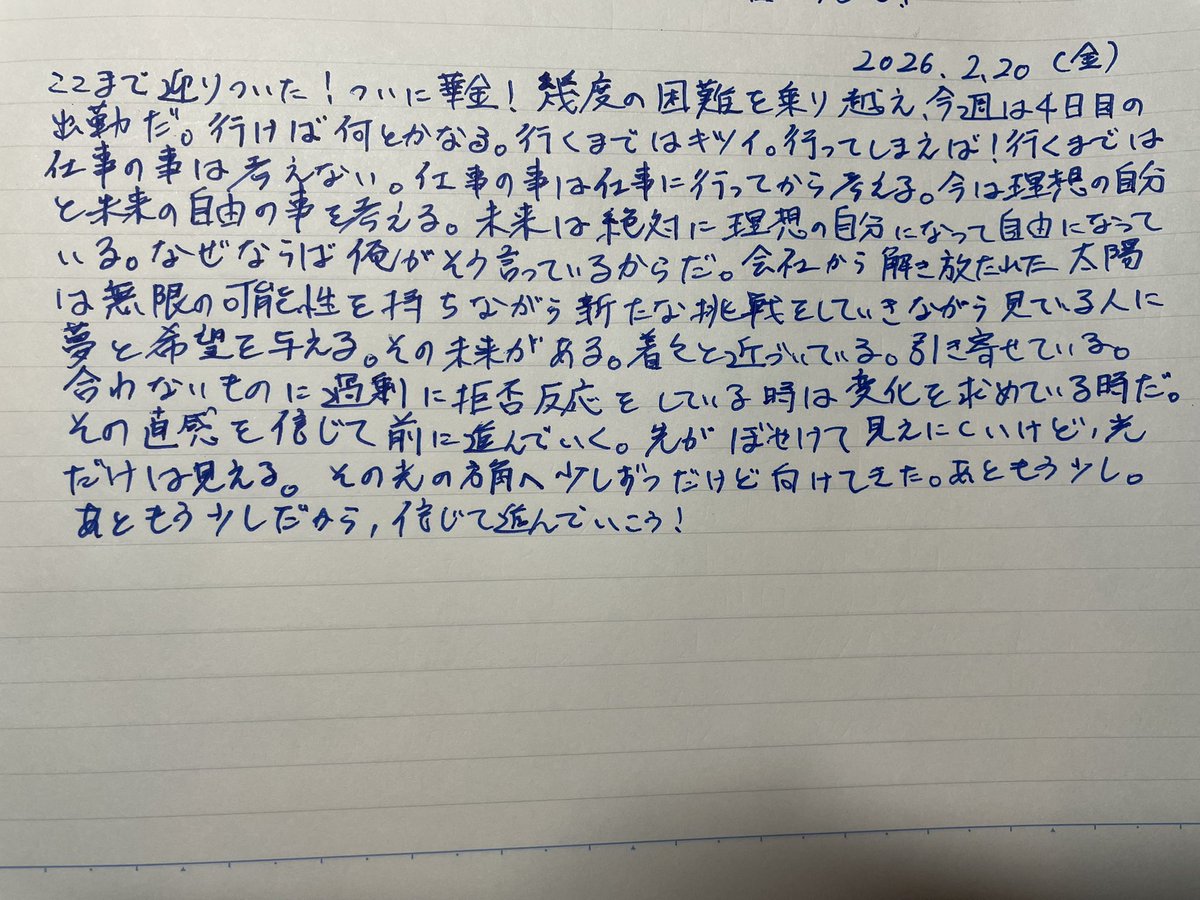 2026.2.20(金)
ここまで迎りついた!ついに華金!幾度の困難を乗り越え、今週は4日目の
出勤だ。行けば何とかなる。行くまではキツイ。行ってしまえば!行くまでは
仕事の事は考えない。仕事の事は仕事に行ってから考える。今は理想の自分
と未来の自由の事を考える。未来は絶対に理想の自分になって自由になって
いる。なぜならば俺がそう言っているからだ。会社から解き放たれた太陽
は無限の可能性を持ちながら新たな挑戦をしていきながら見ている人に
夢と希望を与える。その未来がある。着々と近づいている。引き寄せている。
合わないものに過剰に拒否反応をしている時は変化を求めている時だ。
その直感を信じて前に進んでいく。先がぼやけて見えにくいけど、光
だけは見える。その光の方角へ少しずつだけど向けてきた。あともう少し。
あともう少しだから、信じて進んでいこう!